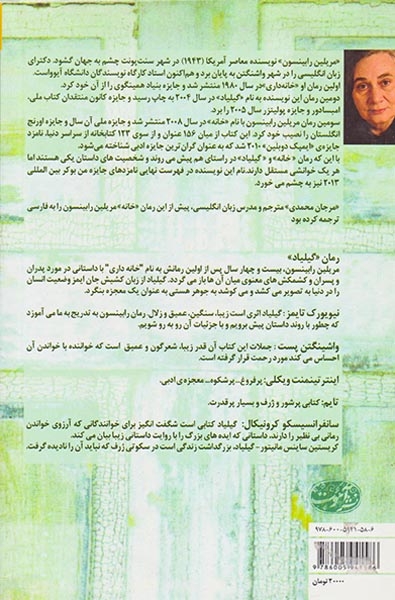 «مریلین رابینسون» نویسنده معاصر آمریکا (۱۹۴۳) در شهر سنت‌پونت چشم به جهان گشود. دکترای
زبان انگلیسی را در شهر واشنگتن به پایان برد و هم‌اکنون استاد کارگاه نویسندگان دانشگاه آیوواست.
اولین رمان او «خانه‌داری» در سال ۱۹۸۰ منتشر شد و جایزه بنیاد همینگوی را از آن خود کرد.
دومین رمان این نویسنده به نام «گیلیاد» در سال ۲۰۰۴ به چاپ رسید و جایزه کانون منتقدان کتاب ملی،
امبسادور و جایزه پولیتزر سال ۲۰۰۵ را برد.
سومین رمان مریلین رابینسون با نام «خانه» در سال ۲۰۰۸ منتشر شد و جایزه ملی آن سال و جایزه اورنج
انگلستان را نصیب خود کرد. این کتاب از میان ۱۵۶ عنوان و از سوی ۱۲۳ کتابخانه از سراسر دنیا، نامزد
جایزه‌ی «ایمپک دوبلین» ۲۰۱۰ شد که به عنوان گران ترین جایزه ادبی شناخته می‌شود.
با این که رمان «خانه» و «گیلیاد» در راستای هم پیش می روند و شخصیت های داستان یکی هستند اما
هر یک خوانشی مستقل دارند. نام این نویسنده در فهرست نهایی نامزدهای جایزه من بوکر بین المللی
۲۰۱۳ نیز به چشم می خورد.
«مرجان محمدی» مترجم و مدرس زبان انگلیسی، پیش از این رمان «خانه» مریلین رابینسون را به فارسی
ترجمه کرده بود
رمان «گیلیاد»
مریلین رابینسون، بیست و چهار سال پس از اولین رمانش به نام "خانه داری" با داستانی در مورد پدران
و پسران و کشمکش های معنوی میان آن ها باز می گردد. گیلیاد از زبان کشیش جان ایمز وضعیت انسان
را در دنیا به تصویر می کشد و می کوشد به جوهر هستی به عنوان یک معجزه بنگرد.
نیویورک تایمز: گیلیاد اثری است زیبا، سنگین، عمیق و زلال. رمان رابینسون به تدریج به ما می آموزد
که چطور با روند داستان پیش برویم و با جزئیات آن رو به رو شویم.
واشینگتن پست: جملات این کتاب آن قدر زیبا، شعرگون و عمیق است که خواننده با خواندن آن
احساس می کند مورد رحمت قرار گرفته است.
اینترتینمنت ویکلی: پرفروغ...پرشکوه...معجزه‌ی ادبی.
تایم: کتابی پرشور و ژرف و بسیار پرقدرت.
سانفرانسیسکو کرونیکال: گیلیاد کتابی است شگفت انگیز برای خوانندگانی که آرزوی خواندن
رمانی بی نظیر را دارند، داستانی که ایده های بزرگ را با روایت داستانی زیبا بیان می کند.
کریستین ساینس مانیتور- گیلیاد، بزرگداشت زندگی است در سکوتی ژرف که نباید آن را نادیده گرفت.
۹۷۸-۶۰۰-۵۹۴۱-۵۸-۶
9 786005 941586
۲۰۰۰۰ تومان